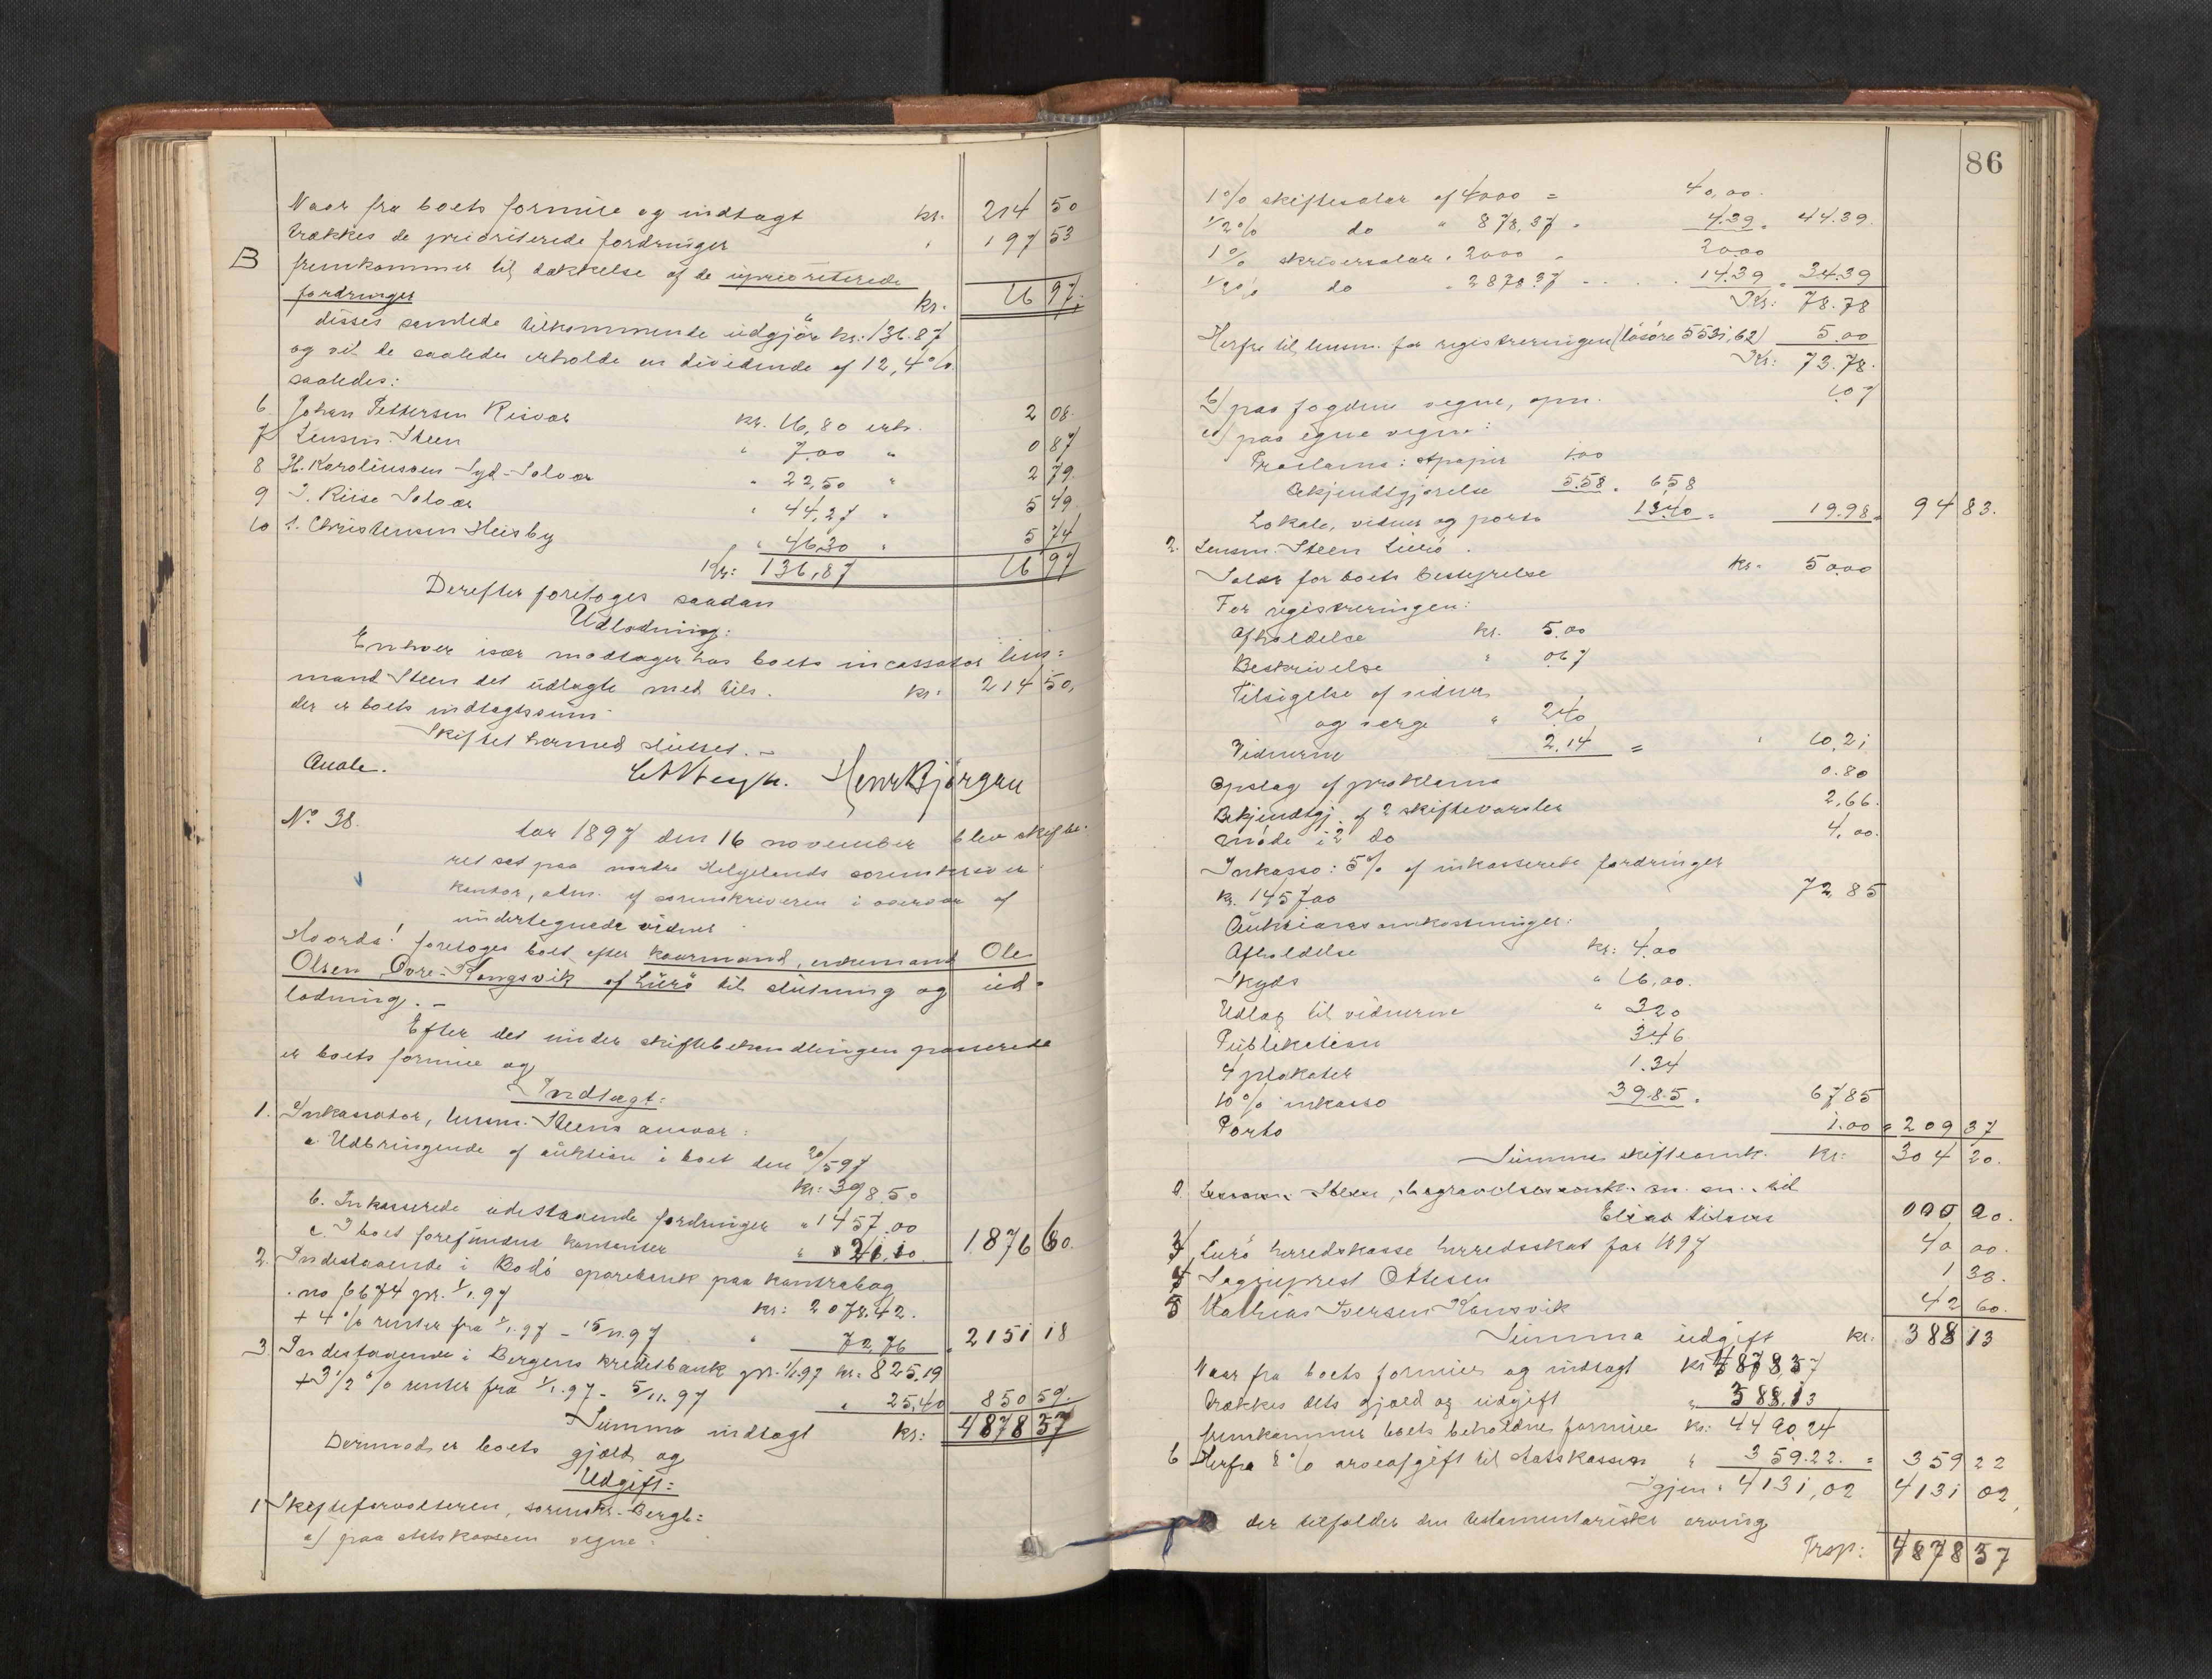 Naar fra boets formue og indtægt kr. 214 50
trækkes de prioriterede fordringer " 197 53
B fremkommer til dækkelse af de uprioriterede
fordringer kr. 16 97.
disses samlede tilkommende udgjör kr: 136.87
og vil de saaledes erholde en dividende af 12,4%
saaledes:
6. Johan Pettersen Risvær kr. 16,80 erh. 2 08.
7 Lensm. Steen " 7.00 " 0 87
8 H. Karoliussen Syd-Solvær " 22,50 " 2 79.
9 J. Riise Solvær " 44,27 " 5 49
10 A. Christensen Heisby " 46.30 " 5 74
Kr: 136,87 16 97
Derefter foretoges saadan
Udlodning:
Enhver især modtager hos boets incassator lens=
mand Steen det udlagte med tils. kr: 214 50,
der er boets indtægtssum.
Skiftet hermed sluttet. –
Qvale. Henr Bjørgan
No 38.
Aar 1897 den 16 november blev skifte=
ret sat paa nordre Helgelands sorenskriver=
kontor, adm. af sorenskriveren i overvær af
undertegnede vidner.
Hvorda! foretoges boet efter kaarmand, enkemand Ole
Olsen Övre-Kongsvik af Lurö til slutning og ud=
lodning. –
Efter det under skiftebehandlingen passerede
er boets formue og
Indtægt:
1. Inkassator, lensm. Steens ansvar:
a Udbringende af auktion i boet den 20/5 97
kr: 398.50
b. Inkasserede udestaaende fordringer " 1457.00
c. I boet forefundne kontanter " 21.10. 1876 60.
2. Indestaaende i Bodö sparebank paa kontrabog
no 6674 pr. 1/1.97 kr: 2078.42.
+ 4% renter fra 1/1.97 – 15/11.97 " 72,76 " 2151 18
3 Indestaaende i Bergens kreditbank pr. 1/1.97 kr. 825.19
+ 3 1/2% renter fra 1/1.97 – 5/11.97 " 25,40 850 59.
Summa indtægt kr: 4878 37
Derimod er boets gjæld og
Udgift:
1 Skifteforvalteren, sorenskr. Bergh:
a) paa statskassens vegne:
86
1% skiftesalær af 4000 = 40,00.
1/2% do " 878,37 " 4.39 = 44.39.
1% skriversalær " 2000 " 20.00
1/2% do " 2878.37 14.39 = 34.39
Kr: 78.78
Herfra til lensm. for registreringen (lösöre 553,62) 5.00
Kr: 73.78.
b) paa fogdens vegne, opn. 1.07
c) paa egne vegne:
Proclama: stpapir 1.00
Bekjendtgjörelse 5.58 = 6.58
Lokale, vidner og porto 13.40 = 19.98 = 94 83.
2. Lensm. Steen Lurö.
Salær for boets bestyrelse kr. 50.00
For registreringen:
Afholdelse kr. 5.00
Beskrivelse " 0.67
Tilsigelse af vidner
og værge " 2.40
Vidnerne 2.14 = " 10,21
Opslag af proklama 0.80
Bekjendtgj. af 2 skiftevarsler 2,66.
Möde i 2 do 4,00.
Inkasso: 5% af inkasserede fordringer
kr. 1457.00 72,85
Auktionsomkostninger:
Afholdelse kr: 4.00
Skyds " 16,00.
Udlæg til vidnerne " 3.20
Publikation 3.46
4 plakater 1.34
10% inkasso 39.85. = 67.85
Porto 1.00 = 209 37
Summa skifteomk. kr: 304 20.
3 Lurö herredskasse herredsskat for 1897 40 00.
4 Sogneprest Ottesen 1 33.
5 Mathias Iversen Konsvik 42 60.
Summa udgift kr. 388 13
Naar fra boets formue og indtægt kr 4878,37
trækkes dets gjæld og udgift " 388.13
fremkommer boets beholdne formue kr: 4490,24
6 Herfra 8% arveafgift til statskassen " 359.22. = 359 22
Igjen: 4131,02 4131 02,
der tilfalder den testamentariske arving
Trsp: 4878 37